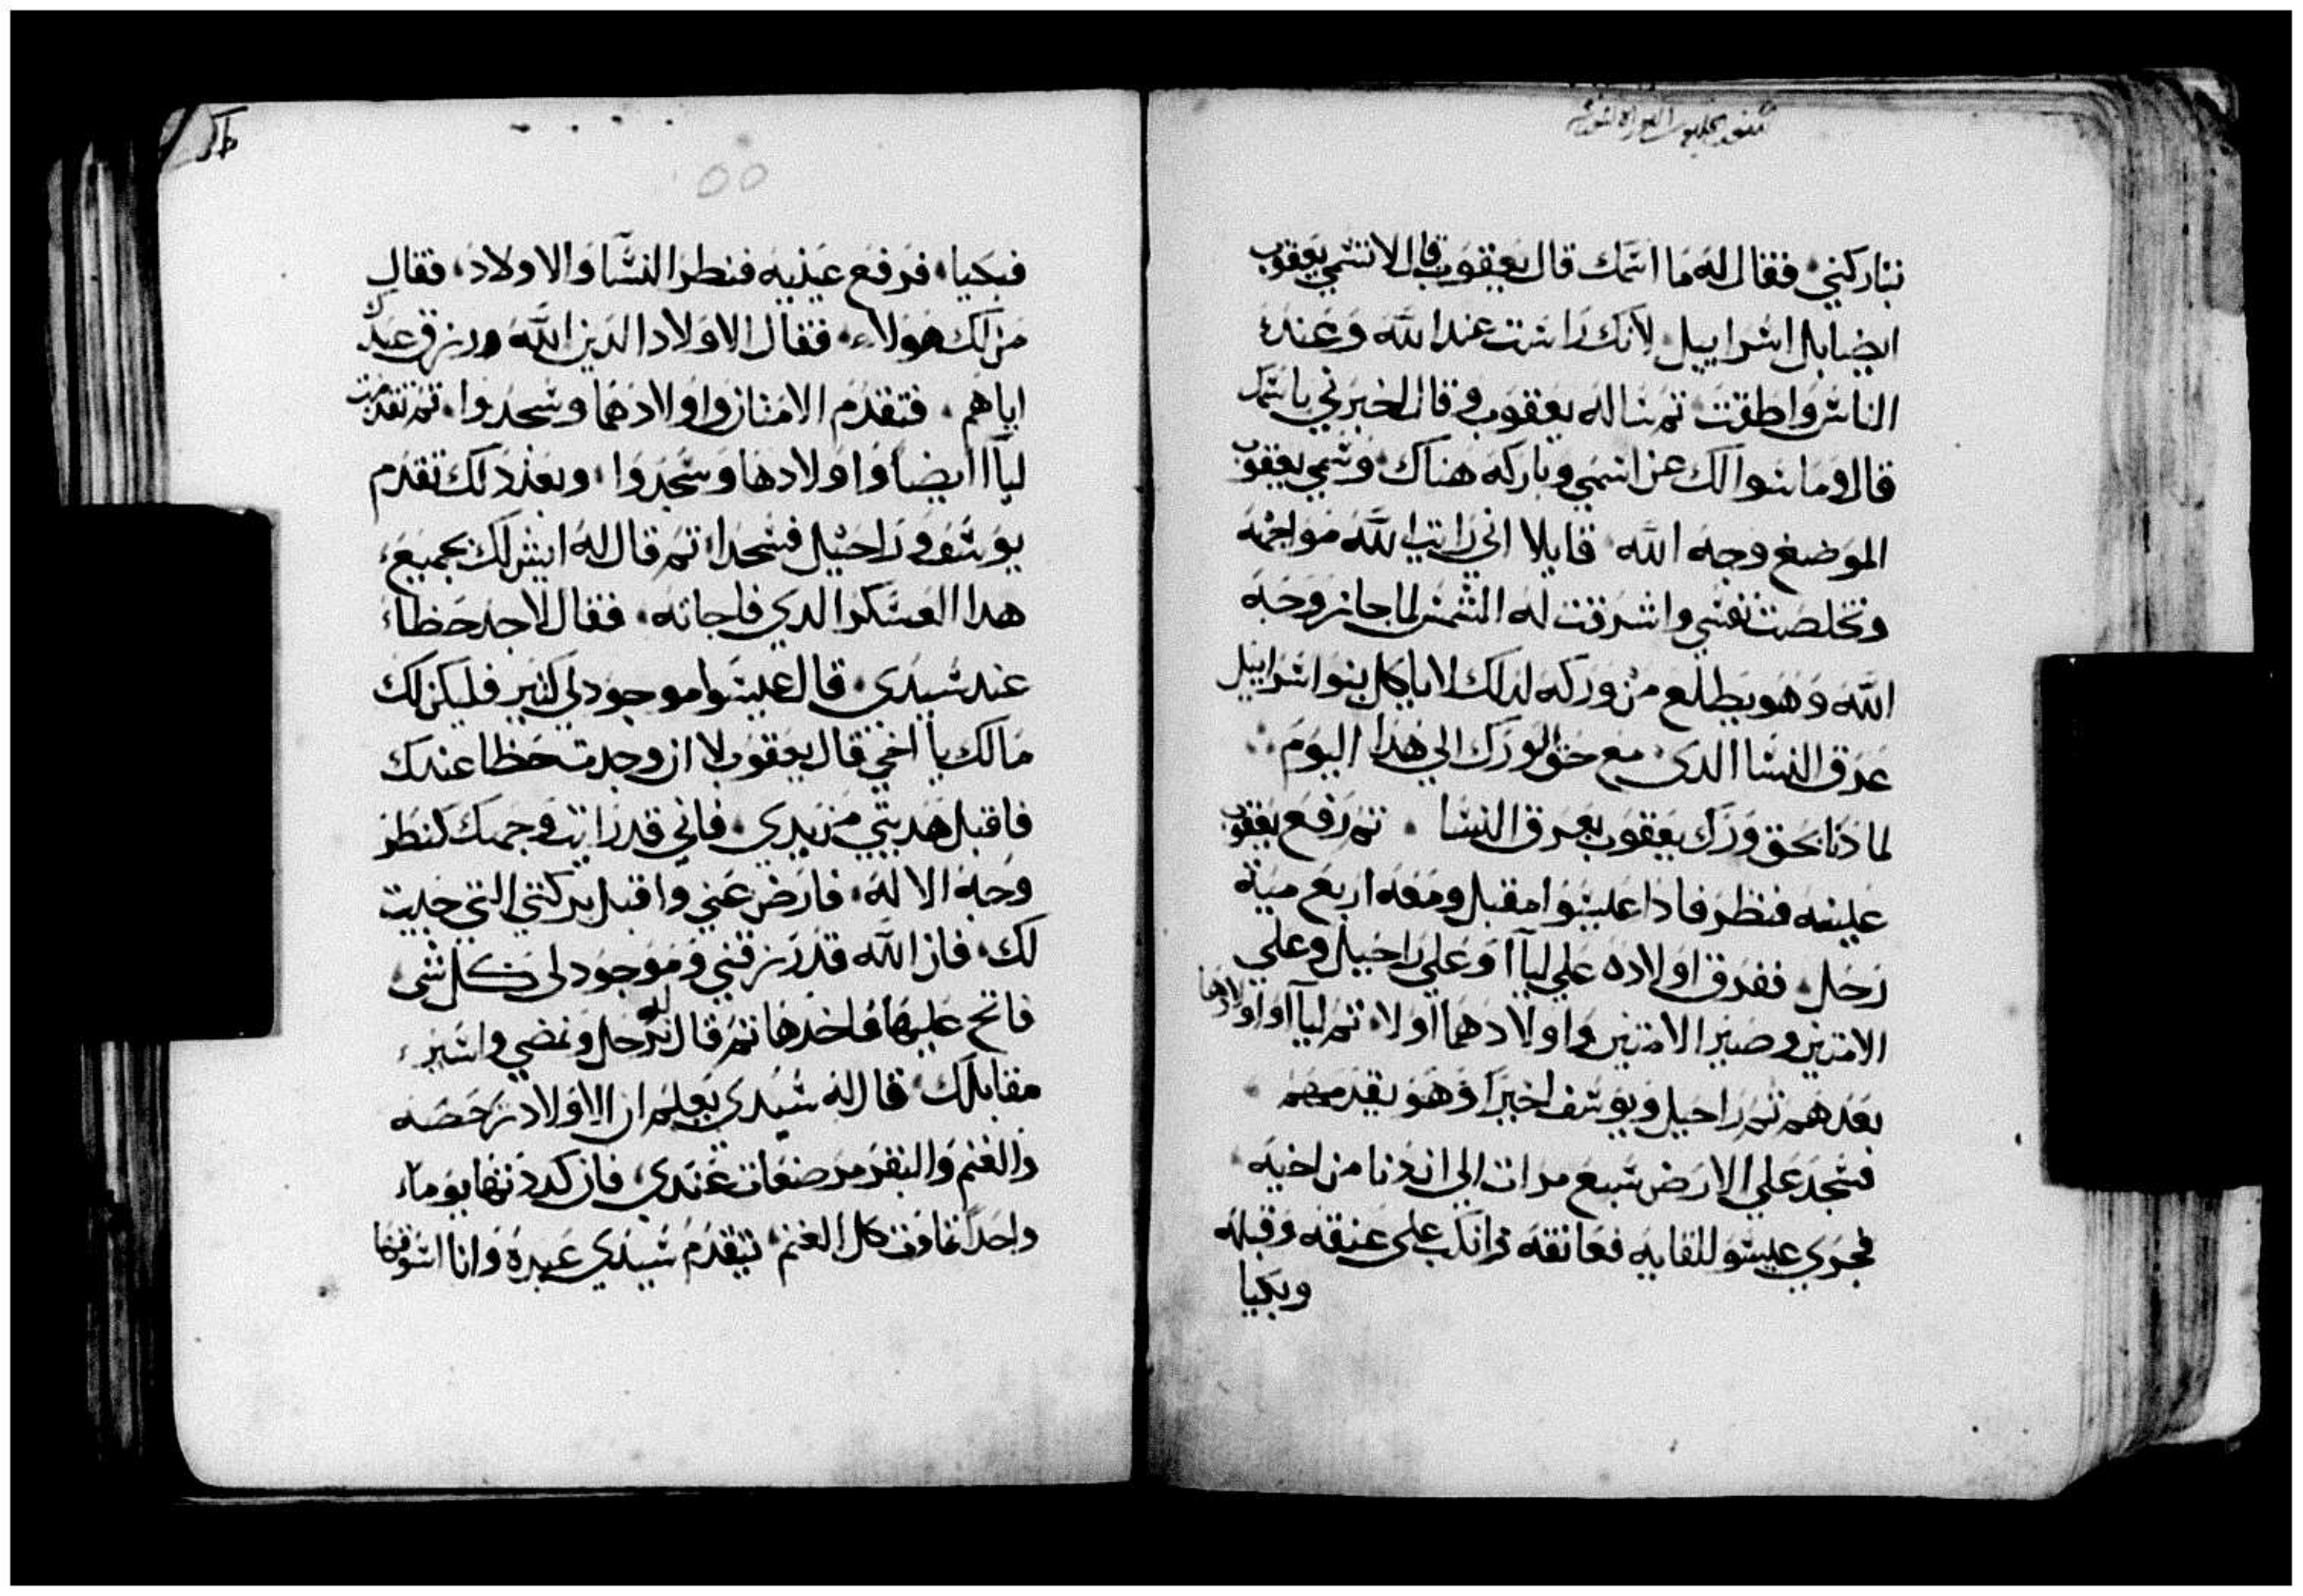 تباركني فقال له ما اسمك قال يعقوب قال لا تسمي يعقوب
ايضا بل اسراييل لانك راست عند الله وعند
الناس واطقت ثم ساله يعقوب وقال اخبرني باسمك
قال وما سوالك عن اسمي وباركه هناك وسمي يعقوب
الموضع وجه الله قايلا اني رايت الله مواجهة
وتخلصت نفسي واشرقت له الشمس لما جاز وجه
الله وهو يطلع من وركه لدلك لا ياكل بنوا اسراييل
عرق النسا الدى مع حق الورك الي هدا اليوم
لما دنا بحق ورك يعقوب بعرق النسا ثم رفع يعقوب
عينيه فنظر فادا عيسوا مقبل ومعه اربع مية
رجل ففرق اولاده علي ليآا وعلي راحيل وعلي
الامتين وصير الامتين واولادهما اولا ثم ليآا واولادها
بعدهم ثم راحيل ويوسف اخيرا وهو يقدمهم
فسجد علي الارض سبع مرات الي ان دنا من اخيه
فجري عيسو للقايه فعانقه وانكب على عنقه وقبله
وبكيا
٥٥
فبكيا فرفع عينيه فنظر النسا والاولاد فقال
من لك هولاء فقال الاولاد الدين الله ورزق عبدك
اياهم فتقدم الامتان واولادهما وسجدوا ثم تقدمت
ليآا ايضا واولادها وسجدوا وبعد دلك تقدم
يوسف وراحيل فسجدا ثم قال له ايش لك بجميع
هدا العسكر الدي فاجاته فقال لاجد حظا
عند سيدي قال عيسوا موجود لي كثير فليكن لك
مالك يا اخي قال يعقوب لا ان وجدت حظا عندك
فاقبل هديتي من يدي فاني قد رايت وجهك كنظر
وجه الاله فارض عني واقبل بركتي التي جبت
لك فان الله قد رزقني وموجود لى كل شى
فالح عليها فاخدها ثم قال له نرحل ونمضي واسير
مقابلك قال له سيدي يعلم ان الاولاد رخصه
والغنم والبقر مرضعات عندي فان كددتها يوما
واحدا تماوت كل الغنم يتقدم سيدي عبده وانا اسوقها